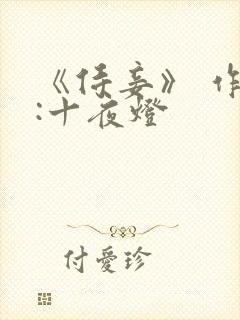 《侍妾》 作
:十夜燈
付愛珍